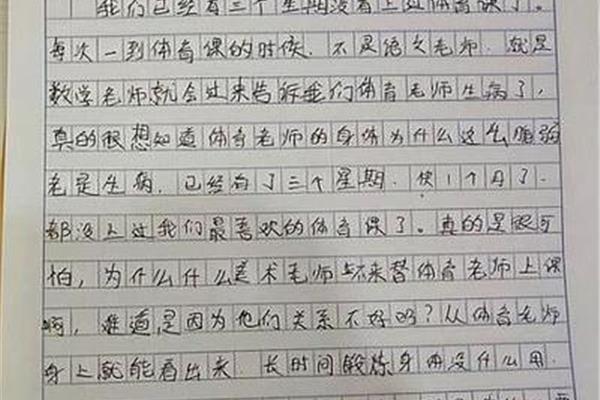 我们已经有三个星期没有上过体育课了。
每次一到体育课的时候，不是语文老师，就是
数学老师就会过来告诉我们体育老师生病了，
真的很想知道体育老师的身体为什么这么脆弱
老是生病，已经有了三个星期，快1个月了，
都没上过我们最喜欢的体育课了。真的是很可
怕，为什么什么美术老师都不来替体育老师上课
啊，难道是因为他们关系不好吗？从体育老师
身上就能看出来，长时间锻炼身体没什么用，